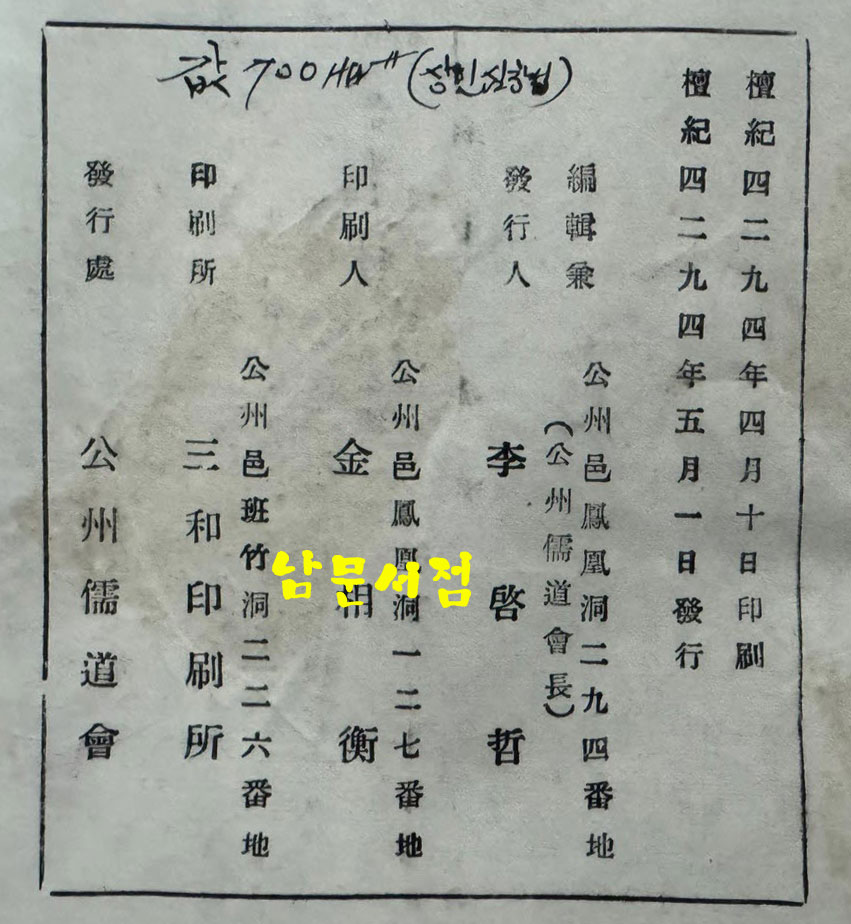 값 700
檀紀四二九四年四月十日印刷
檀紀四二九四年五月一日發行
公州邑鳳凰洞二九四番地
編輯兼
(公州儒道會長)
發行人 李啓哲
公州邑鳳凰洞一二七番地
印刷人 金相衡
公州邑班竹洞二二六番地
印刷所 三和印刷所
發行處 公州儒道會
남문서점